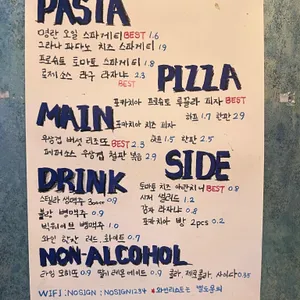 PASTA
명란 오일 스파게티 BEST 1.6
그라나 파다노 치즈 스파게티 1.9
프로슈토 토마토 스파게티 1.8
로제소스 라구 라자냐 2.3
PIZZA
포카치아 프로슈토 루꼴라 피자 BEST
하프 1.7 한판 2.9
포카치아 치즈 피자
하프 1.5 한판 2.5
MAIN
우삼겹 버섯 리조또 BEST 2.3
페퍼소스 우삼겹 철판 볶음 2.9
SIDE
토마토 치즈 아란치니 BEST 0.8
시저 샐러드 1.2
감자 라자냐 0.8
포카치아 빵 2pcs 0.2
DRINK
스텔라 생맥주 0.9
블랑 병맥주 0.9
빅웨이브 병맥주 1.0
와인 한잔 레드, 화이트 0.7
NON-ALCOHOL
라임 모히또 0.9 레몬에이드 0.7 콜라, 제로콜라, 사이다 0.35
WIFI : NOSIGN : NOSIGN1234 * 와인리스트는 별도문의